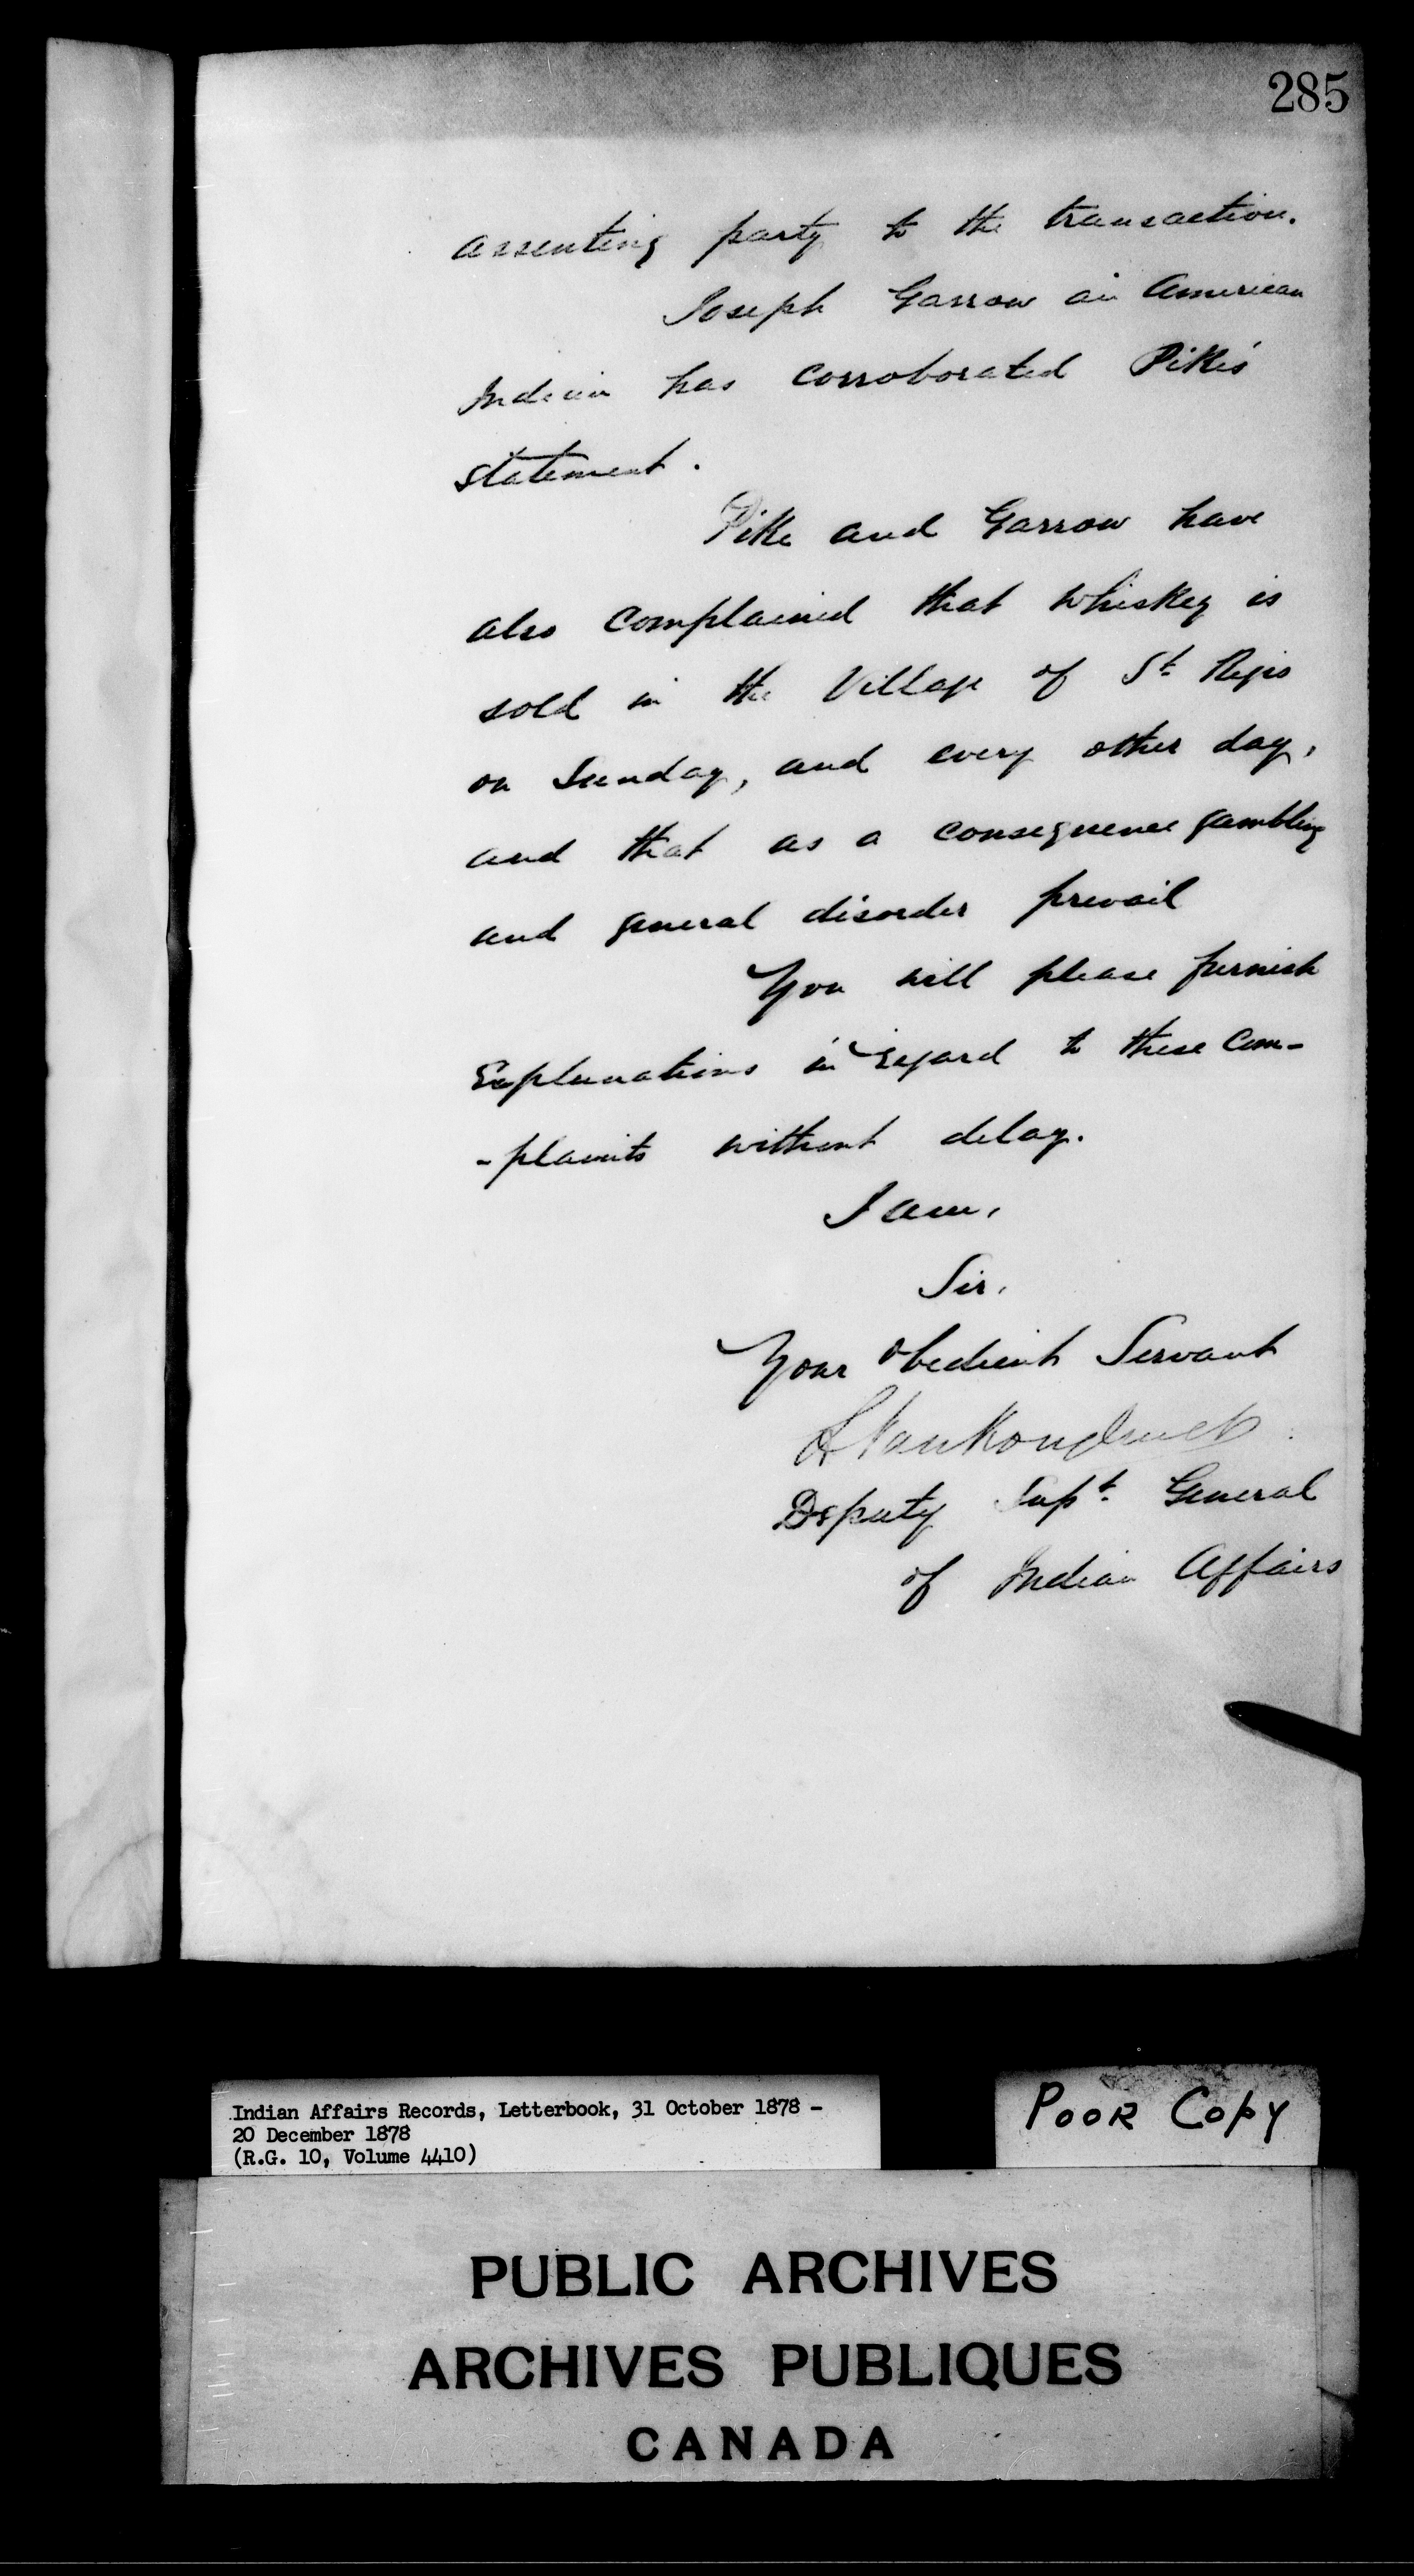 285
assenting party to the transaction.
Joseph Garrow an American
Indian has corroborated Pike's
statement.
Pike and Garrow have
also complained that whiskey is
sold in the Village of St. Regis
on Sunday, and every other day,
and that as a consequence gambling
and general disorder prevail
You will please furnish
Explanations in regard to these Com-
-plaints without delay.
I am,
Sir,
Your obedient Servant
L VanKoughnet
Deputy Supt. General
of Indian Affairs
Indian Affairs Records, Letterbook, 31 October 1878 -
20 December 1878
(R.G. 10, Volume 4410)
POOR COPY
PUBLIC ARCHIVES
ARCHIVES PUBLIQUES
CANADA